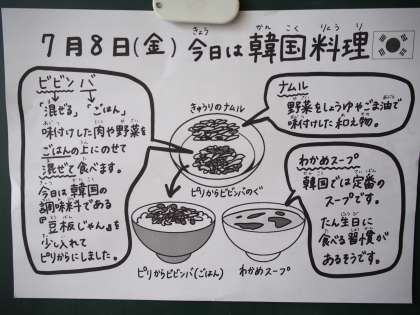 7月8日(金) 今日は韓国料理
きょう かんこくりょうり
ビビンバ
「混ぜる」「ごはん」
味付けした肉や野菜を
ごはんの上にのせて
混ぜて食べます。
今日は韓国の
調味料である
『豆板じゃん』を
少し入れて
ピリからにしました。
きゅうりのナムル
ピリからビビンバのぐ
ピリからビビンバ(ごはん)
わかめスープ
ナムル
野菜をしょうゆやごま油で
味付けした和え物。
わかめスープ
韓国では定番の
スープです。
たん生日に
食べる習慣が
あるそうです。